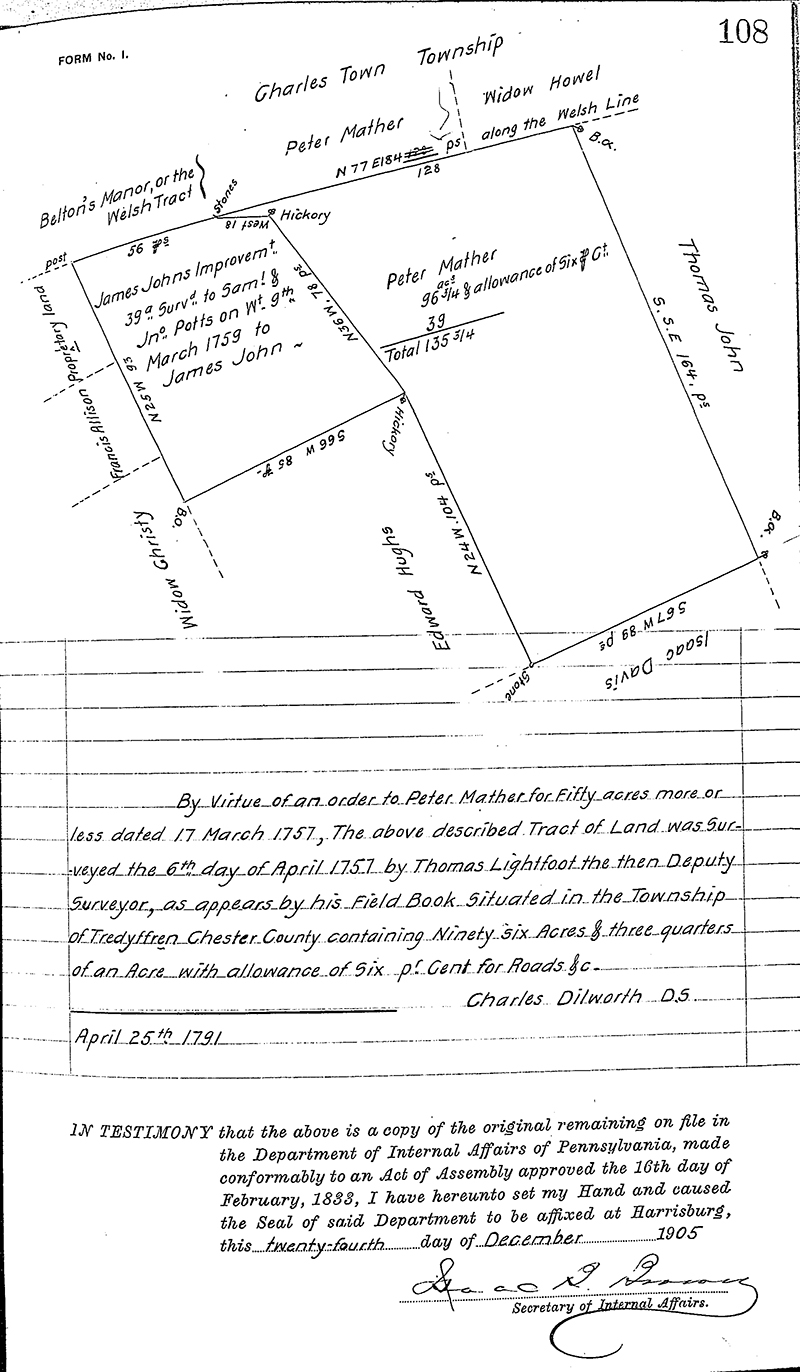 108
FORM No. 1.
Charles Town Township
Widow Howel
along the Welsh Line
B.o.
Peter Mather
N 77 E 184 ps
128
Belton's Manor, or the
Welsh Tract
Stones
West 18
Hickory
post
56 ps
James Johns Improvemt.
39a Survd. to Saml. &
Jno. Potts on Wt. 9th
March 1759 to
James John ~
N36W. 78 ps
Peter Mather
acs
96 3/4 & allowance of Six p Ct.
39
Total 135 3/4
Thomas John
S.S.E 164. ps
Proprietory land
Francis Allison
N25W 93
B.o.
Widow Christy
S66 W 85 ps
Hickory
Edward Hughs
N24W. 104 ps
B.o.
S67W 89 ps
Isaac Davis
Stone
By Virtue of an order to Peter Mather for Fifty acres more or
less dated 17 March 1757, The above described Tract of Land was Sur-
-veyed the 6th day of April 1757 by Thomas Lightfoot the then Deputy
Surveyor, as appears by his Field Book Situated in the Township
of Tredyffren Chester County containing Ninety six Acres & three quarters
of an Acre with allowance of Six pr. Cent for Roads &c.
Charles Dilworth D.S.
April 25th 1791
IN TESTIMONY that the above is a copy of the original remaining on file in
the Department of Internal Affairs of Pennsylvania, made
conformably to an Act of Assembly approved the 16th day of
February, 1833, I have hereunto set my Hand and caused
the Seal of said Department to be affixed at Harrisburg,
this twenty-fourth day of December 1905
Isaac B. Brown
Secretary of Internal Affairs.